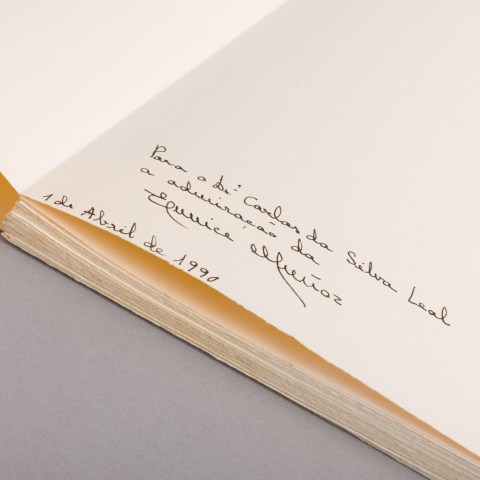 Para o Dr. Carlos da Silva Leal
a admiração da
Eunice Muñoz
1 de Abril de 1990